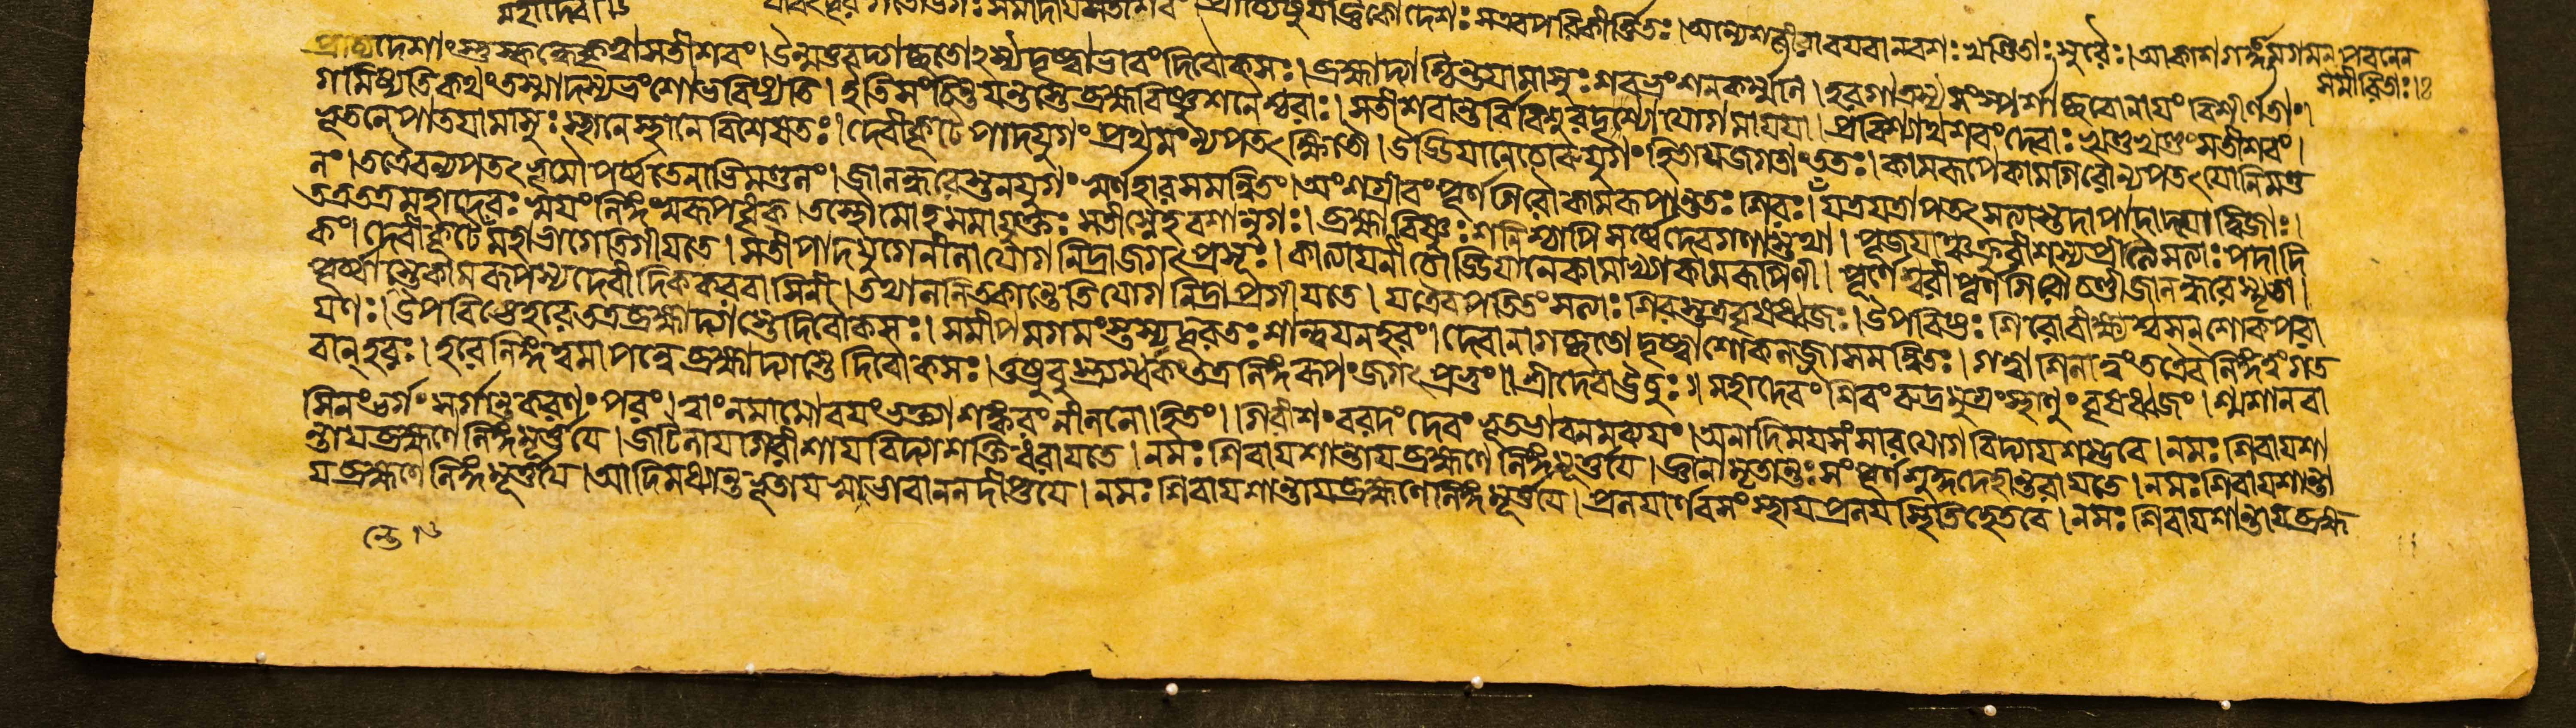 মহাদেবা
প্রাচ্যেষুযাজ্ঞিকোদেশঃ সএবপরিকীর্ত্তিতঃ। অন্যেশরীরাবযবানবশঃ খণ্ডিতাঃ সুরৈঃ। আকাশগঙ্গামগমন্ পবনেন
সমীরিতাঃ।
প্রাচ্যদেশাংস্তুস্কন্ধেকৃত্বাসতীশবং। উন্মত্তবদ্গচ্ছতোঽস্যদৃষ্ট্বাভাবংদিবৌকসঃ। ব্রহ্মাদ্যাশ্চিন্তযামাসুঃ শবভ্রংশনকর্ম্মনি। হরগাত্রস্য সংস্পর্শাচ্ছবোনাযং বিশীর্ণতাং।
গমিষ্যতিকথংতস্মাদস্যভ্রংশোভবিষ্যতি। ইতিসংচিন্তযন্তস্তেব্রহ্মবিষ্ণুশনৈশ্চরাঃ। সতীশবান্তর্বিবিশুরদৃশ্যাযোগমাযযা। প্রবিশ্যাথশবংদেবাঃ খণ্ডখণ্ডংসতীশবং।
ভূতলেপাতযামাসুঃ স্থানেস্থানেবিশেষতঃ। দেবীকূটেপাদযুগং প্রথমংন্যপতৎক্ষিতৌ। উড্ডিযানেচোরুযুগং হিতাযজগতাংততঃ। কামরূপেকামগিরৌন্যপতৎযোনিমণ্ড
লং। তত্রৈবন্যপতৎভূমৌপর্ব্বতেনাভিমণ্ডলং। জালন্ধরেস্তনযুগং স্বর্ণহারসমন্বিতং। অংশগ্রীবংপূর্ণগিরৌকামরূপান্ততঃ শিরঃ। যত্রযত্রাপতৎসত্যাস্তদাপাদাদযোদ্বিজাঃ।
তত্রতত্রমহাদেবঃ স্বযংলিঙ্গস্বরূপধৃক্। তস্থৌমোহসমাযুক্তঃ সতীস্নেহবশানুগঃ। ব্রহ্মাবিষ্ণুঃ শনিশ্চাপিসর্ব্বেদেবগণাস্তথা। পূজযাঞ্চক্রুরীশস্যপ্রীত্যৈসত্যাঃ পদাদি
কং। দেবীকূটেমহাভাগেতিগীযতে। সতীপাদযুগেলীনাযোগনিদ্রাজগৎপ্রসূঃ। কাত্যাযনীচোড্ডিযানেকামাখ্যাকামরূপিণী। পূর্ণেশ্বরীপূর্ণগিরৌচণ্ডীজালন্ধরেস্মৃতা।
পূর্ব্বান্তেকামরূপস্যদেবীদিক্করবাসিনী। তথাললিতকান্তেতিযোগনিদ্রাপ্রগীযতে। যত্রৈবপতিতংসত্যাঃ শিরস্তত্রবৃষধ্বজঃ। উপবিষ্টঃ শিরোবীক্ষ্যশ্বসন্শোকপরা
যণঃ। উপবিষ্টেহরেতত্রব্রহ্মাদ্যাস্তেদিবৌকসঃ। সমীপমগমংস্তস্যদূরতঃ শান্ত্বযন্হরং। দেবানাগচ্ছতোদৃষ্ট্বাশোকলজ্জাসমন্বিতঃ। গত্বাশিলাত্বংতত্রৈবলিঙ্গত্বংগত
বান্হরঃ। হরেলিঙ্গত্বমাপন্নেব্রহ্মাদ্যাস্তেদিবৌকসঃ। তুষ্টুবুস্ত্র্যম্বকংতত্রলিঙ্গরূপংজগৎপ্রভুং॥ শ্রীদেবাউচুঃ॥ মহাদেবং শিবং রুদ্রমুগ্রংস্থাণুংবৃষধ্বজং। শ্মশানবা
সিনংভর্গং সর্গান্তকরণং পরং। ত্বাংনমামোবযংভক্ত্যাশঙ্করংনীললোহিতং। গিরীশংবরদং দেবং ভূতভাবনমব্যযং। অনাদিমযসংসারযোগবিদ্যাযশম্ভবে। নমঃ শিবাযশা
ন্তাযব্রহ্মণেলিঙ্গমূর্ত্তযে। জটিলাযগিরীশাযবিদ্যাশক্তিধরাযতে। নমঃ শিবাযশান্তাযব্রহ্মণে লিঙ্গমূর্ত্তযে। জ্ঞানামৃতান্তঃ সংপূর্ণশুদ্ধদেহান্তরাযতে। নমঃ শিবাযশান্তা
যব্রহ্মণে লিঙ্গমূর্ত্তযে। আদিমধ্যান্তভূতাযস্বভাবানলদীপ্তযে। নমঃ শিবাযশান্তাযব্রহ্মণেলিঙ্গমূর্ত্তযে। প্রলযার্ণবসংস্থাযপ্রলযস্থিতিহেতবে। নমঃ শিবাযশান্তাযব্রহ্ম